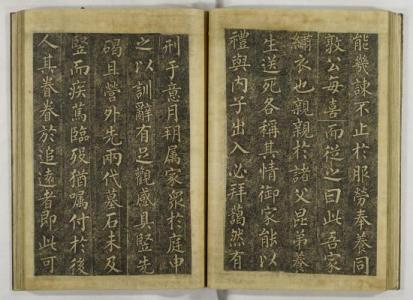 能幾諫不止於服勞奉養同
敦公每喜而從之曰此吾家
繡衣也親親於諸父昆弟養
生送死各稱其情御家能以
禮與内子出入必拜藹然有
刑于意月朔属家衆於庭申
之以訓辭有足觀感具竪先
碣且營外先兩代墓石未及
竪而疾篤臨歿猶属付於後
人其眷眷於追遠者即此可